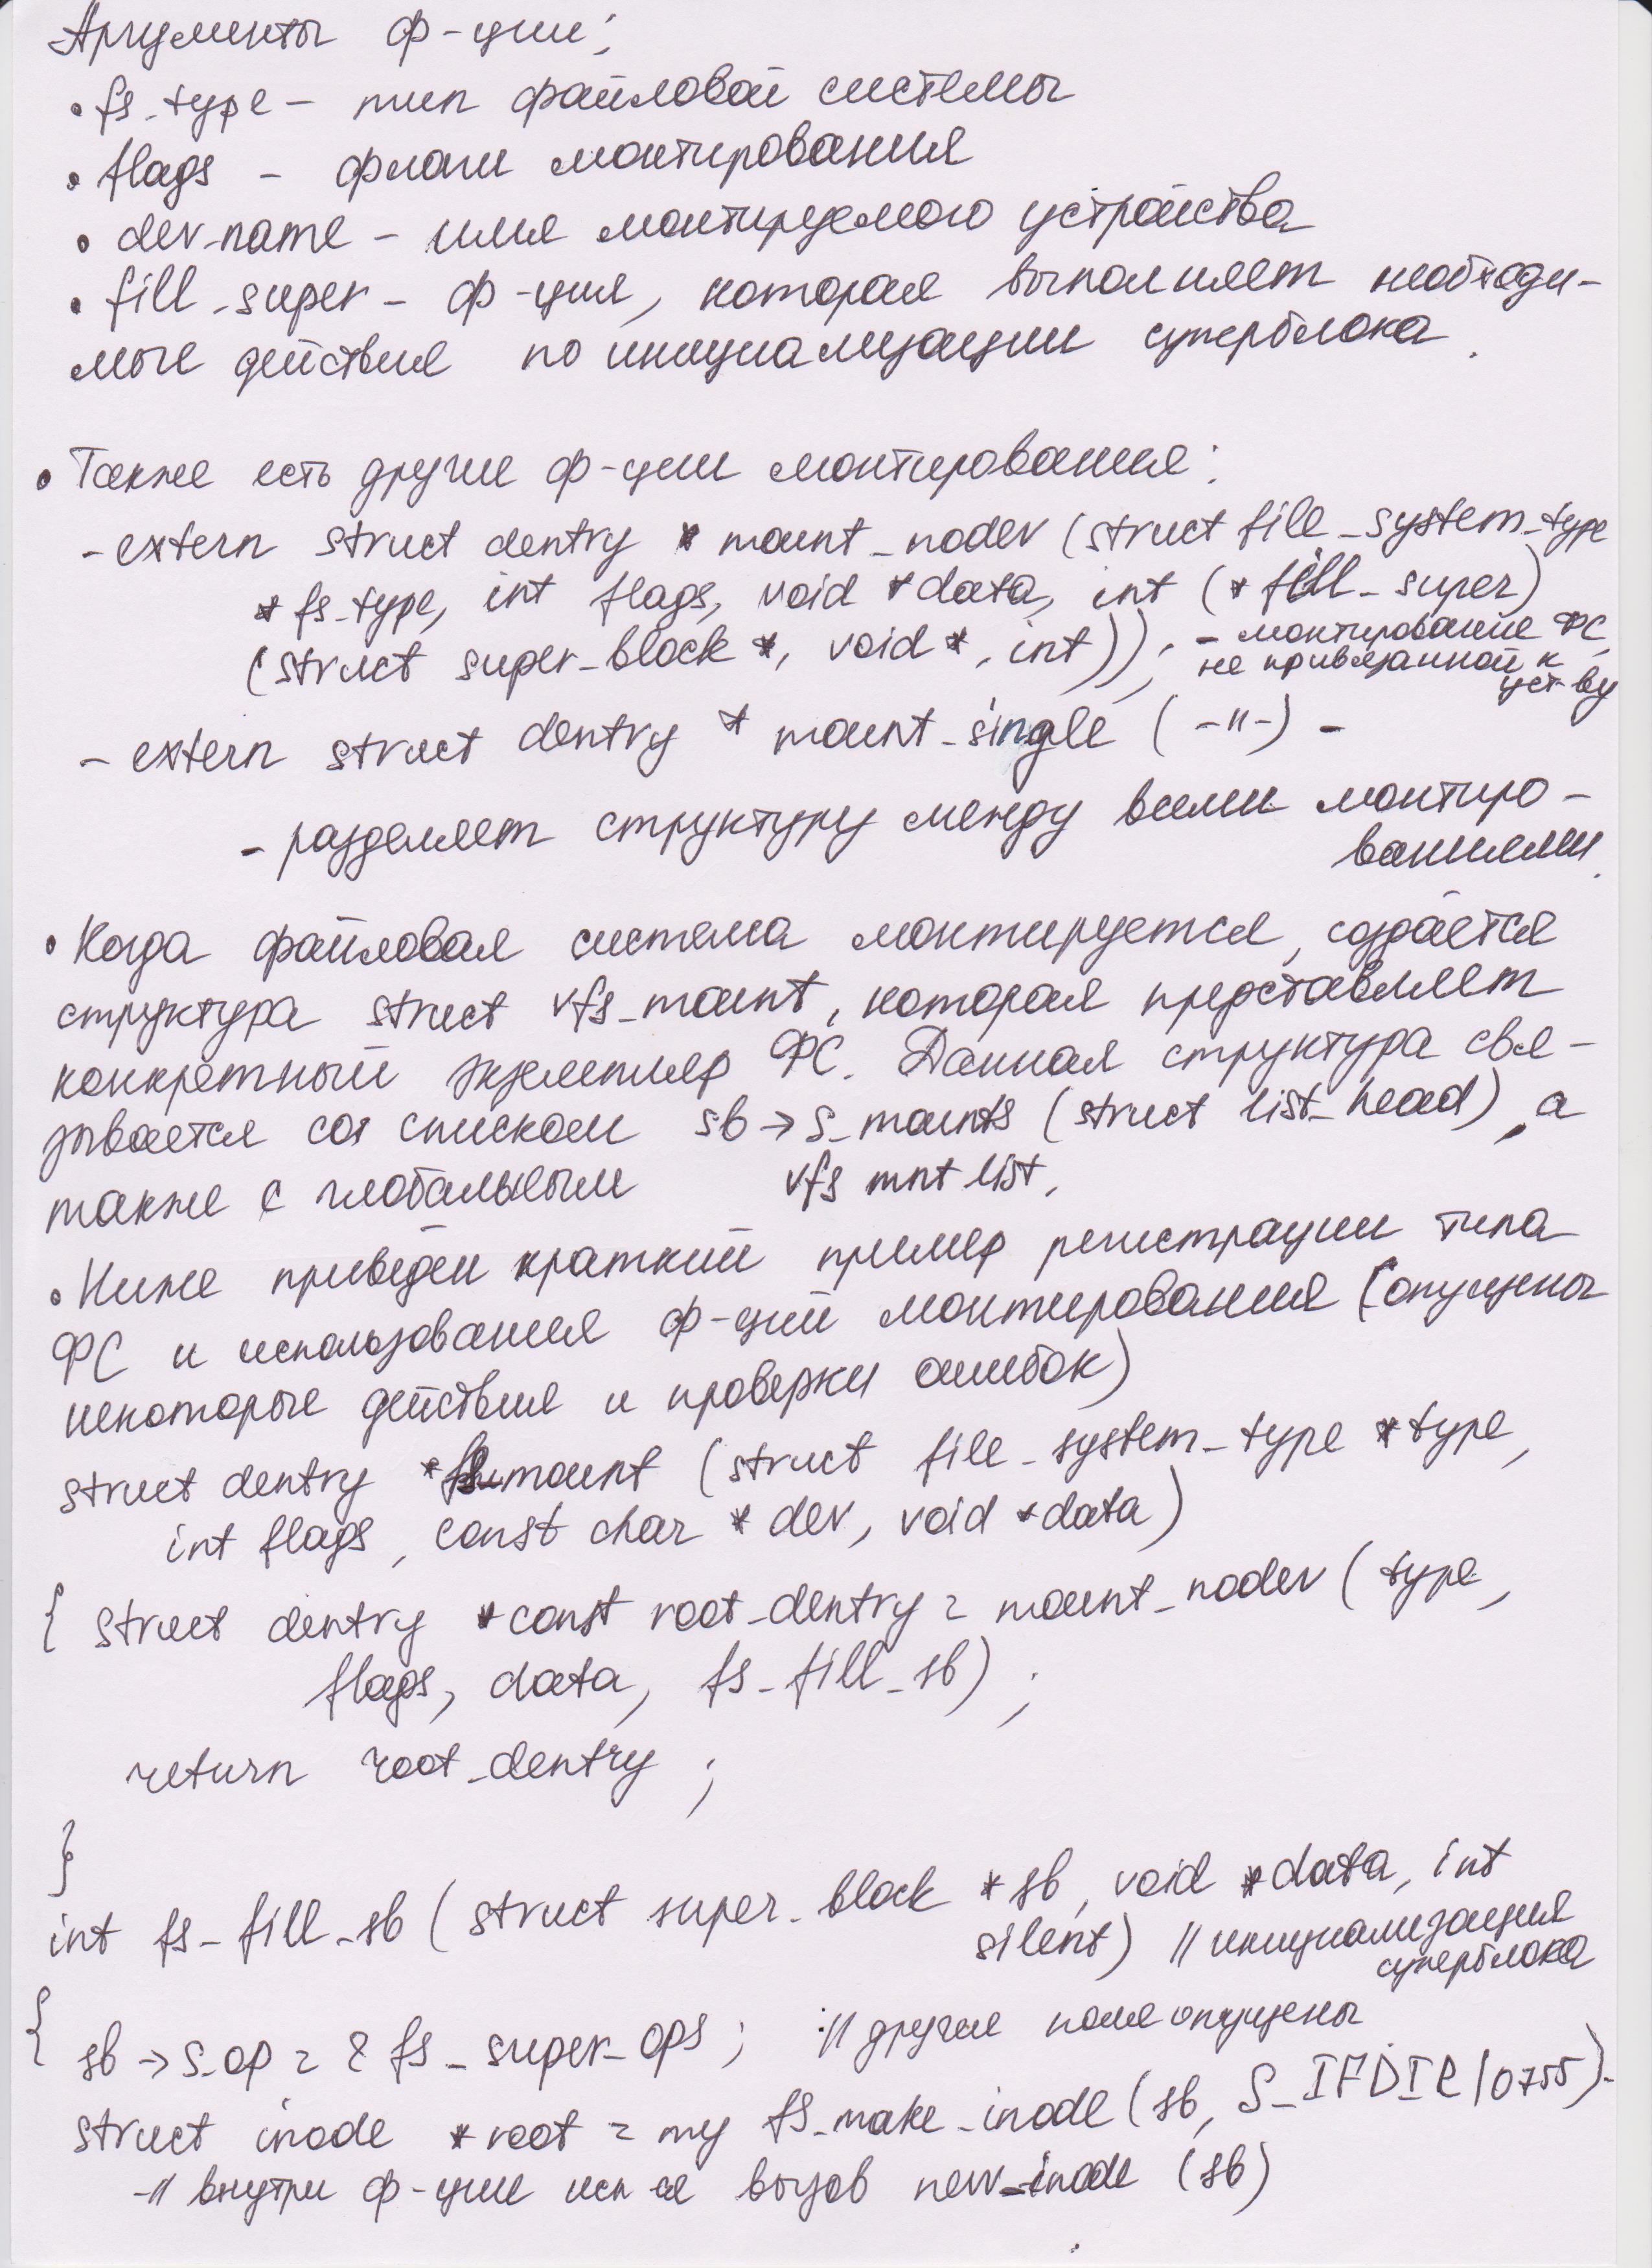 Аргументы ф-ции:
• fs_type – тип файловой системы
• flags – флаги монтирования
• dev_name – имя монтируемого устройства
• fill_super – ф-ция, которая выполняет необходи-
мые действия по инициализации суперблока.
• Также есть другие ф-ции монтирования:
- extern struct dentry * mount_nodev (struct file_system_type
* fs_type, int flags, void *data, int (* fill_super)
(struct super_block *, void *, int)); - монтирование ФС,
не привязанной к
уст-ву
- extern struct dentry * mount_single ( -"- ) -
- разделяет структуру между всеми монтиро-
ваниями.
• Когда файловая система монтируется, создаётся
структура struct vfs_mount, которая представляет
конкретный экземпляр ФС. Данная структура свя-
зывается со списком sb → s_mounts (struct list_head), а
также с глобальным vfs mnt list.
• Ниже приведён краткий пример регистрации типа
ФС и использования ф-ций монтирования (опущены
некоторые действия и проверки ошибок)
struct dentry *fs_mount (struct file_system_type *type,
int flags, const char * dev, void *data)
{ struct dentry *const root_dentry = mount_nodev (type,
flags, data, fs_fill_sb) ;
return root_dentry ;
}
int fs_fill_sb (struct super_block *sb, void *data, int
silent) // инициализация
суперблока
{ sb → s_op = & fs_super_ops ; // другие поля опущены
struct inode *root = my fs_make_inode (sb, S_IFDIR | 0755)
// внутри ф-ции исп-ся вызов new_inode (sb)